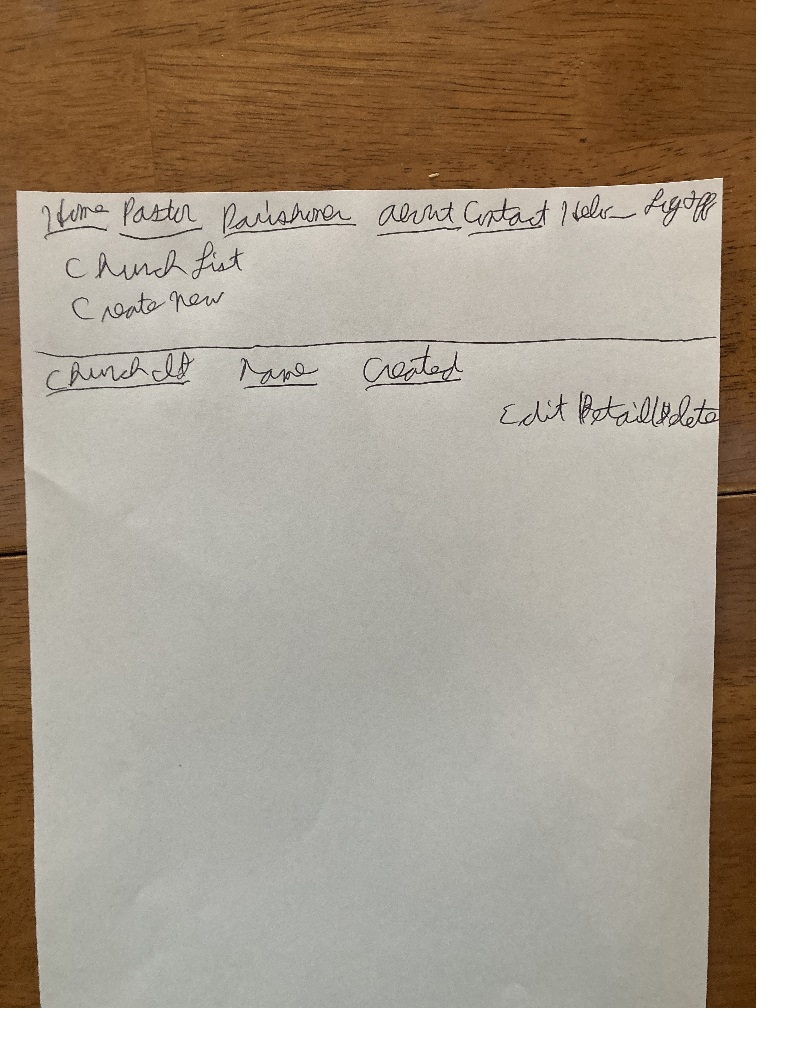 Home Pastor Parishoner about Contact Help Log Off
Church List
Create new
Church Id Name Created
Edit Details Delete